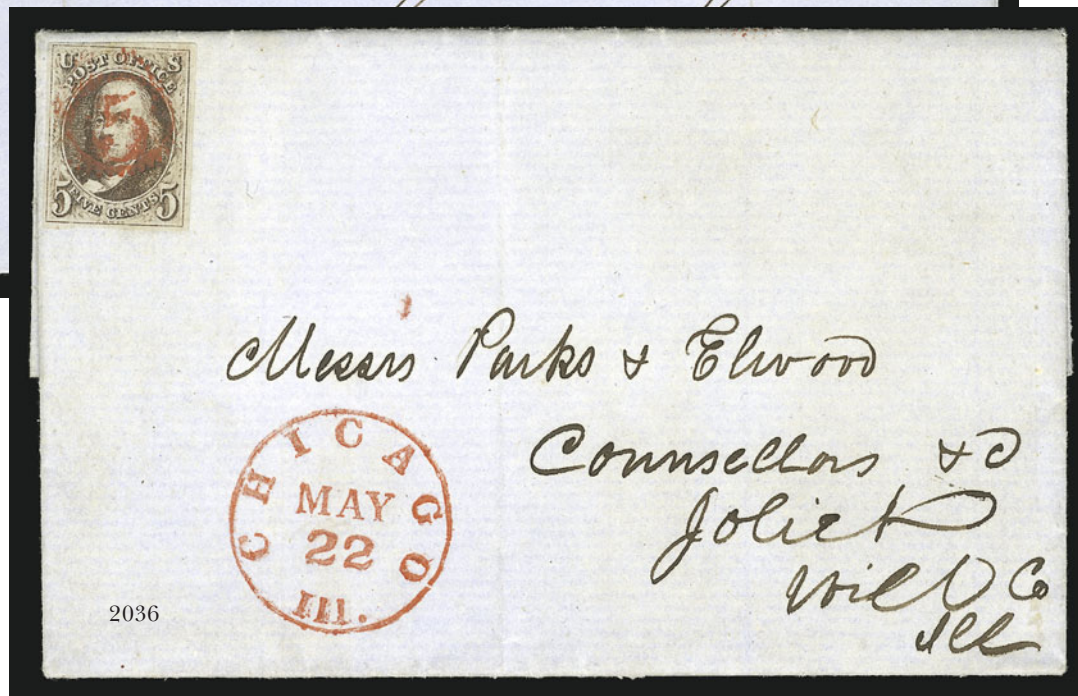 U S
POST OFFICE
5
5 FIVE CENTS 5
Messrs Parks & Elwood
Counsellors &c
Joliet
Will Co
Ill
CHICAGO
MAY
22
Ill.
2036